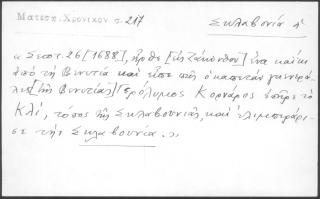 Ματεση. Χρονικον σ. 217
Σκλαβονία 1
« Σεπτ. 26 [1688], ἦρθε [εἰς Ζάκυνθον] ἕνα καΐκι
ἀπό τη Βενετία και εἶπε πῶς ὁ καπετάν γενερά-
λες [τῆς Βενετίας] Γερόλυμος Κορνάρος ἐπῆρε το
Κλί, τόπος τῆς Σκλαβουνιάς, και ελιμπεράρι-
σε τήν Σκλαβουνία.»